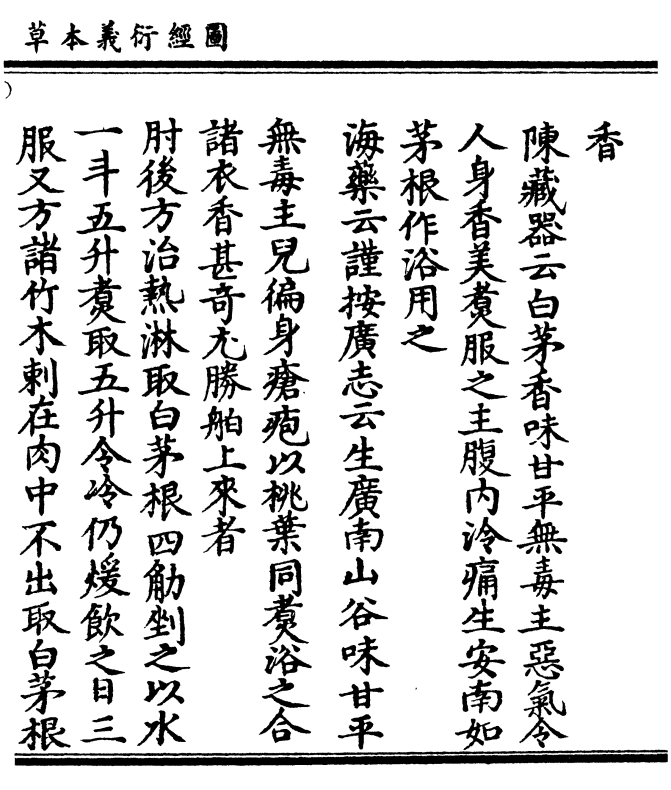 圖經衍義本草
香
陳藏器云白茅香味甘平無毒主惡氣令
人身香美煑服之主腹内冷痛生安南如
茅根作浴用之
海藥云謹按廣志云生廣南山谷味甘平
無毒主兒徧身瘡疱以桃葉同煑浴之合
諸衣香甚奇尤勝舶上來者
肘後方治熱淋取白茅根四觔剉之以水
一斗五升煑取五升令冷仍煖飲之日三
服又方諸竹木刺在肉中不出取白茅根